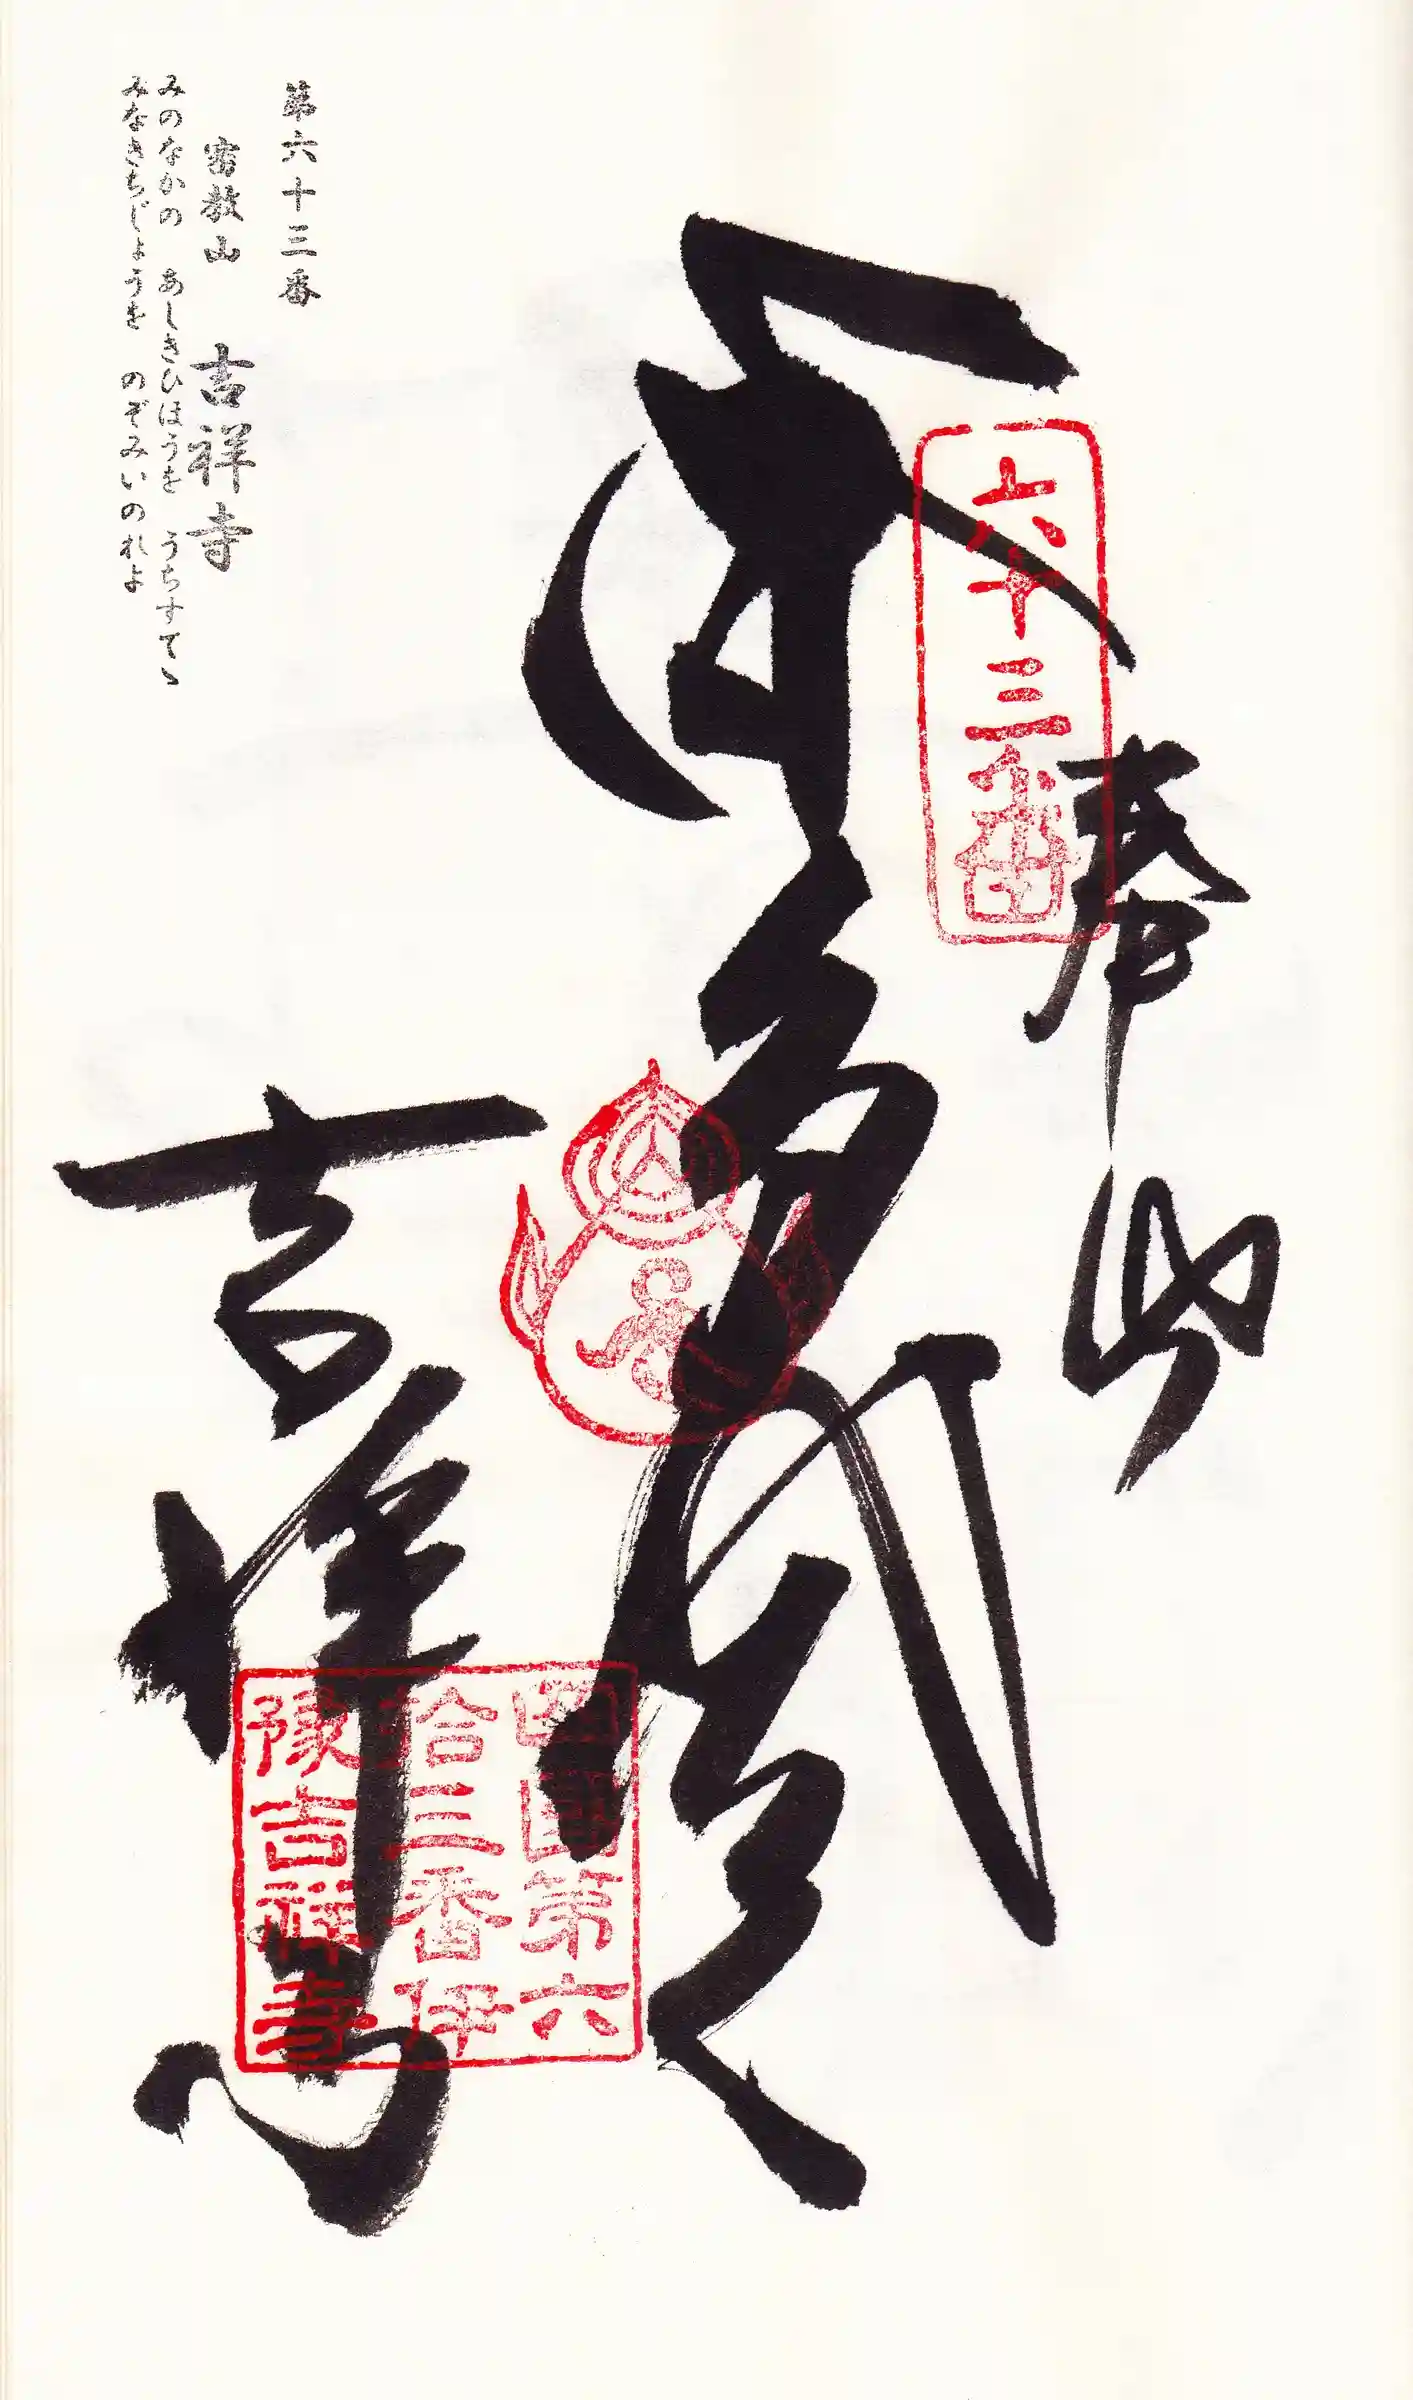 六十三番
奉
四國第六
拾三番伊
豫吉祥寺
吉祥寺
第六十三番
密教山 吉祥寺
みのなかの あしきひほうを うちすてゝ
みなきちじょうを のぞみいのれよ